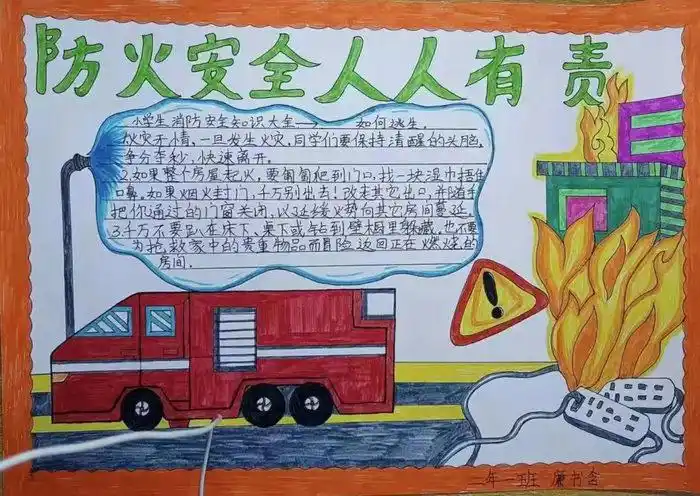 防火安全人人有责
小学生消防安全知识大全一、如何逃生.
1.火灾无情,一旦发生火灾,同学们要保持清醒的头脑,
争分夺秒,快速离开。
2.如果整个房屋起火,要匍匐爬到门口,找一块湿巾捂住
口鼻。如果烟火封门,千万别出去!改走其它出口,并随手
把你通过的门窗关闭,以延缓火势向其它房间蔓延。
3.千万不要趴在床下、桌下或钻到壁橱里躲藏。也不要
为抢救家中的贵重物品而冒险返回正在燃烧的
房间.
二年一班 廉书含